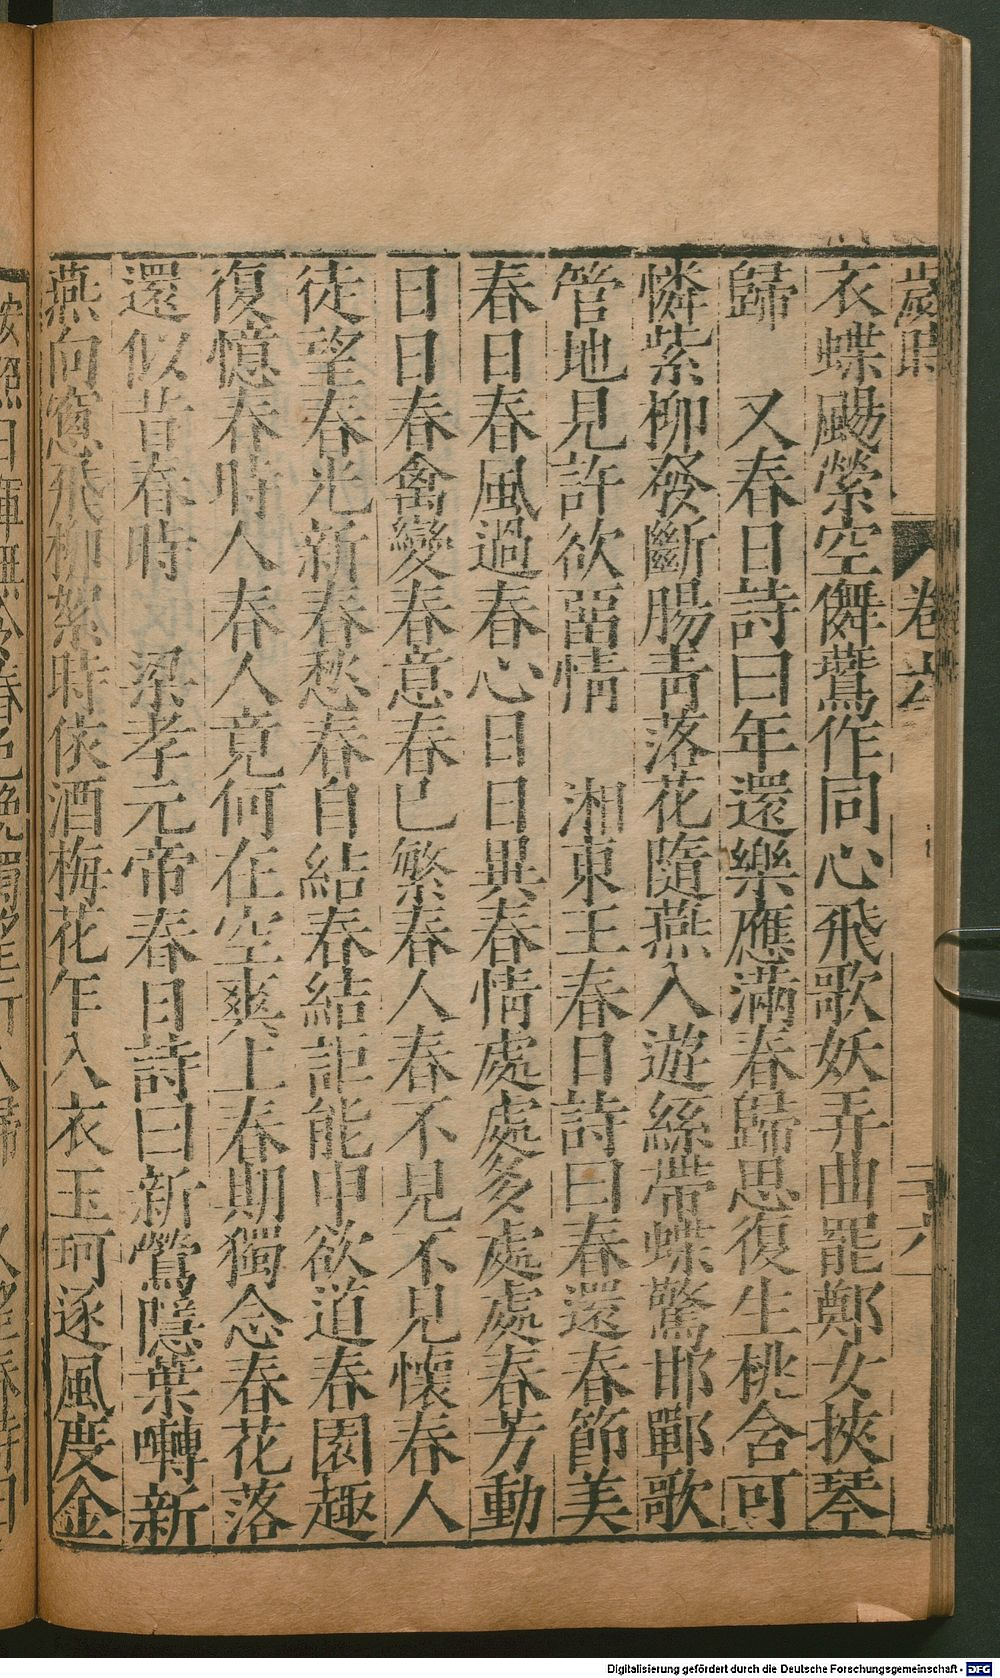 歲時
卷六
二十六
衣蝶颺縈空儛鷰作同心飛歌妖弄曲罷鄭女挾琴
歸　又春日詩曰年還樂應滿春歸思復生桃含可
憐紫柳發斷腸青落花隨燕入遊絲帶蝶驚邯鄲歌
管地見許欲畱情　湘東王春日詩曰春還春節美
春日春風過春心日日異春情處處多處處春芳動
日日春禽變春意春已繁春人春不見不見懷春人
徒望春光新春愁春自結春結詎能申欲道春園趣
復憶春時人春人竟何在空爽上春期獨念春花落
還似昔春時　梁孝元帝春日詩曰新鶯隱葉囀新
燕向窻飛柳絮時依酒梅花乍入衣玉珂逐風度金
Digitalisierung gefördert durch die Deutsche Forschungsgemeinschaft - DFG